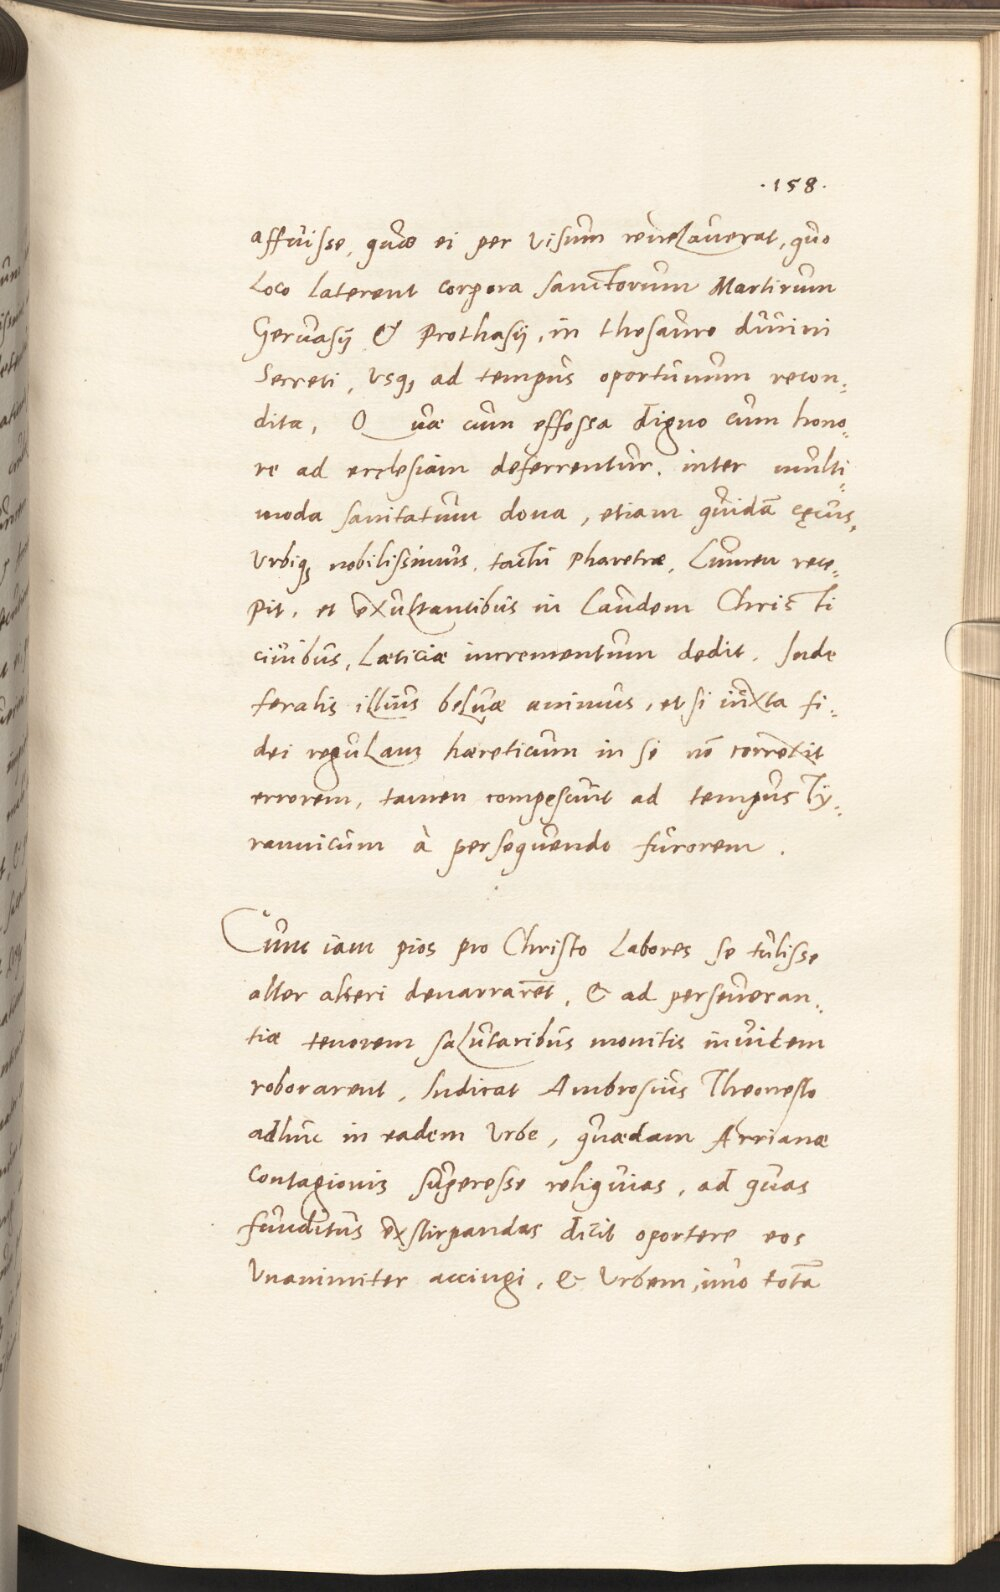 .158.
affuisse, quæ ei per Visum reuelauerat, quo
loco laterent corpora sanctorum Martirum
Geruasij & Prothasij, in thesauro diuini
Secreti, Vsq3 ad tempus oportunum recon=
dita, Quæ cum effossa digno cum hono=
re ad ecclesiam deferrentur, inter multi=
moda sanitatum dona, etiam quidā cęcus,
Vrbiq3 nobilissimus, tactu Pharetræ, Lumen rece=
pit, et exultantibus in Laudem Christi
ciuibus, Læticiæ incrementum dedit. Inde
feralis illius beluæ animus, et si iuxta fi=
dei regulam hæreticum in se nō correxit
errorem, tamen compescuit ad tempus Ty=
rannicum à persequendo furorem.
Cum iam pios pro Christo Labores se tulisse
alter alteri denarrarēt, & ad perseueran=
tiæ tenorem salutaribus monitis inuicem
roborarent, Indicat Ambrosius Theonesto
adhuc in eadem Vrbe, quædam Arrianæ
contagionis superesse reliquias, ad quas
funditus exstirpandas dicit oportere eos
Vnanimiter accingi, & Vrbem, imo totā